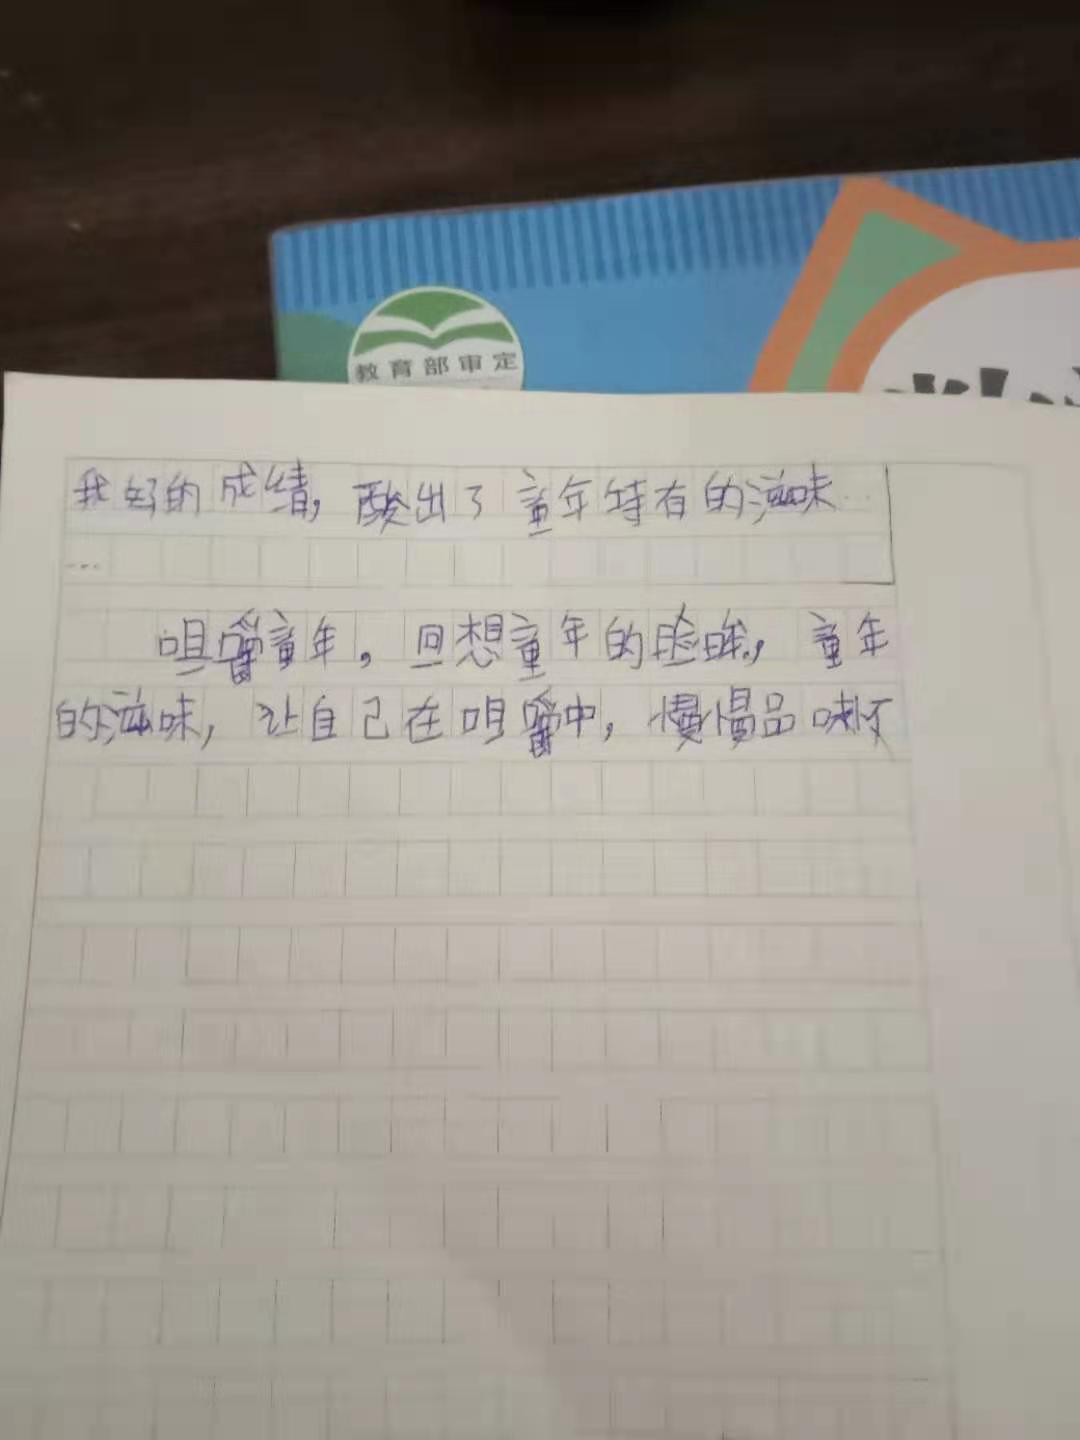 教育部审定
我好的成绩，酸出了童年特有的滋味…
…
咀嚼童年，回想童年的脸眸，童年
的滋味，让自己在咀嚼中，慢慢品味怀